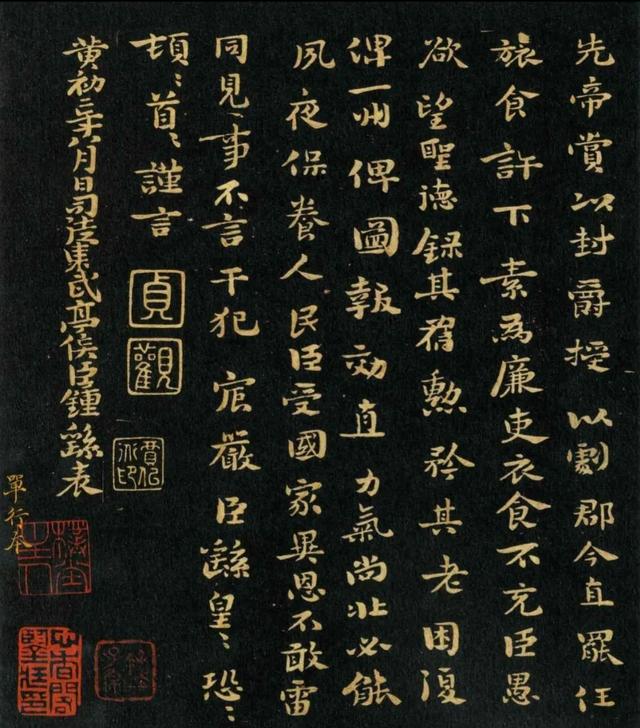 先帝賞以封爵授以劇郡今直罷任
旅食許下素為廉吏衣食不充臣愚
欲望聖德録其舊勲矜其老困復
俾一州俾圖報効直力氣尚壯必能
夙夜保養人民臣受國家異恩不敢雷
同見事不言干犯宸嚴臣繇皇〻恐〻
頓〻首〻謹言
貞觀
黄初二年八月日司徒東武亭侯臣鍾繇表
單行本